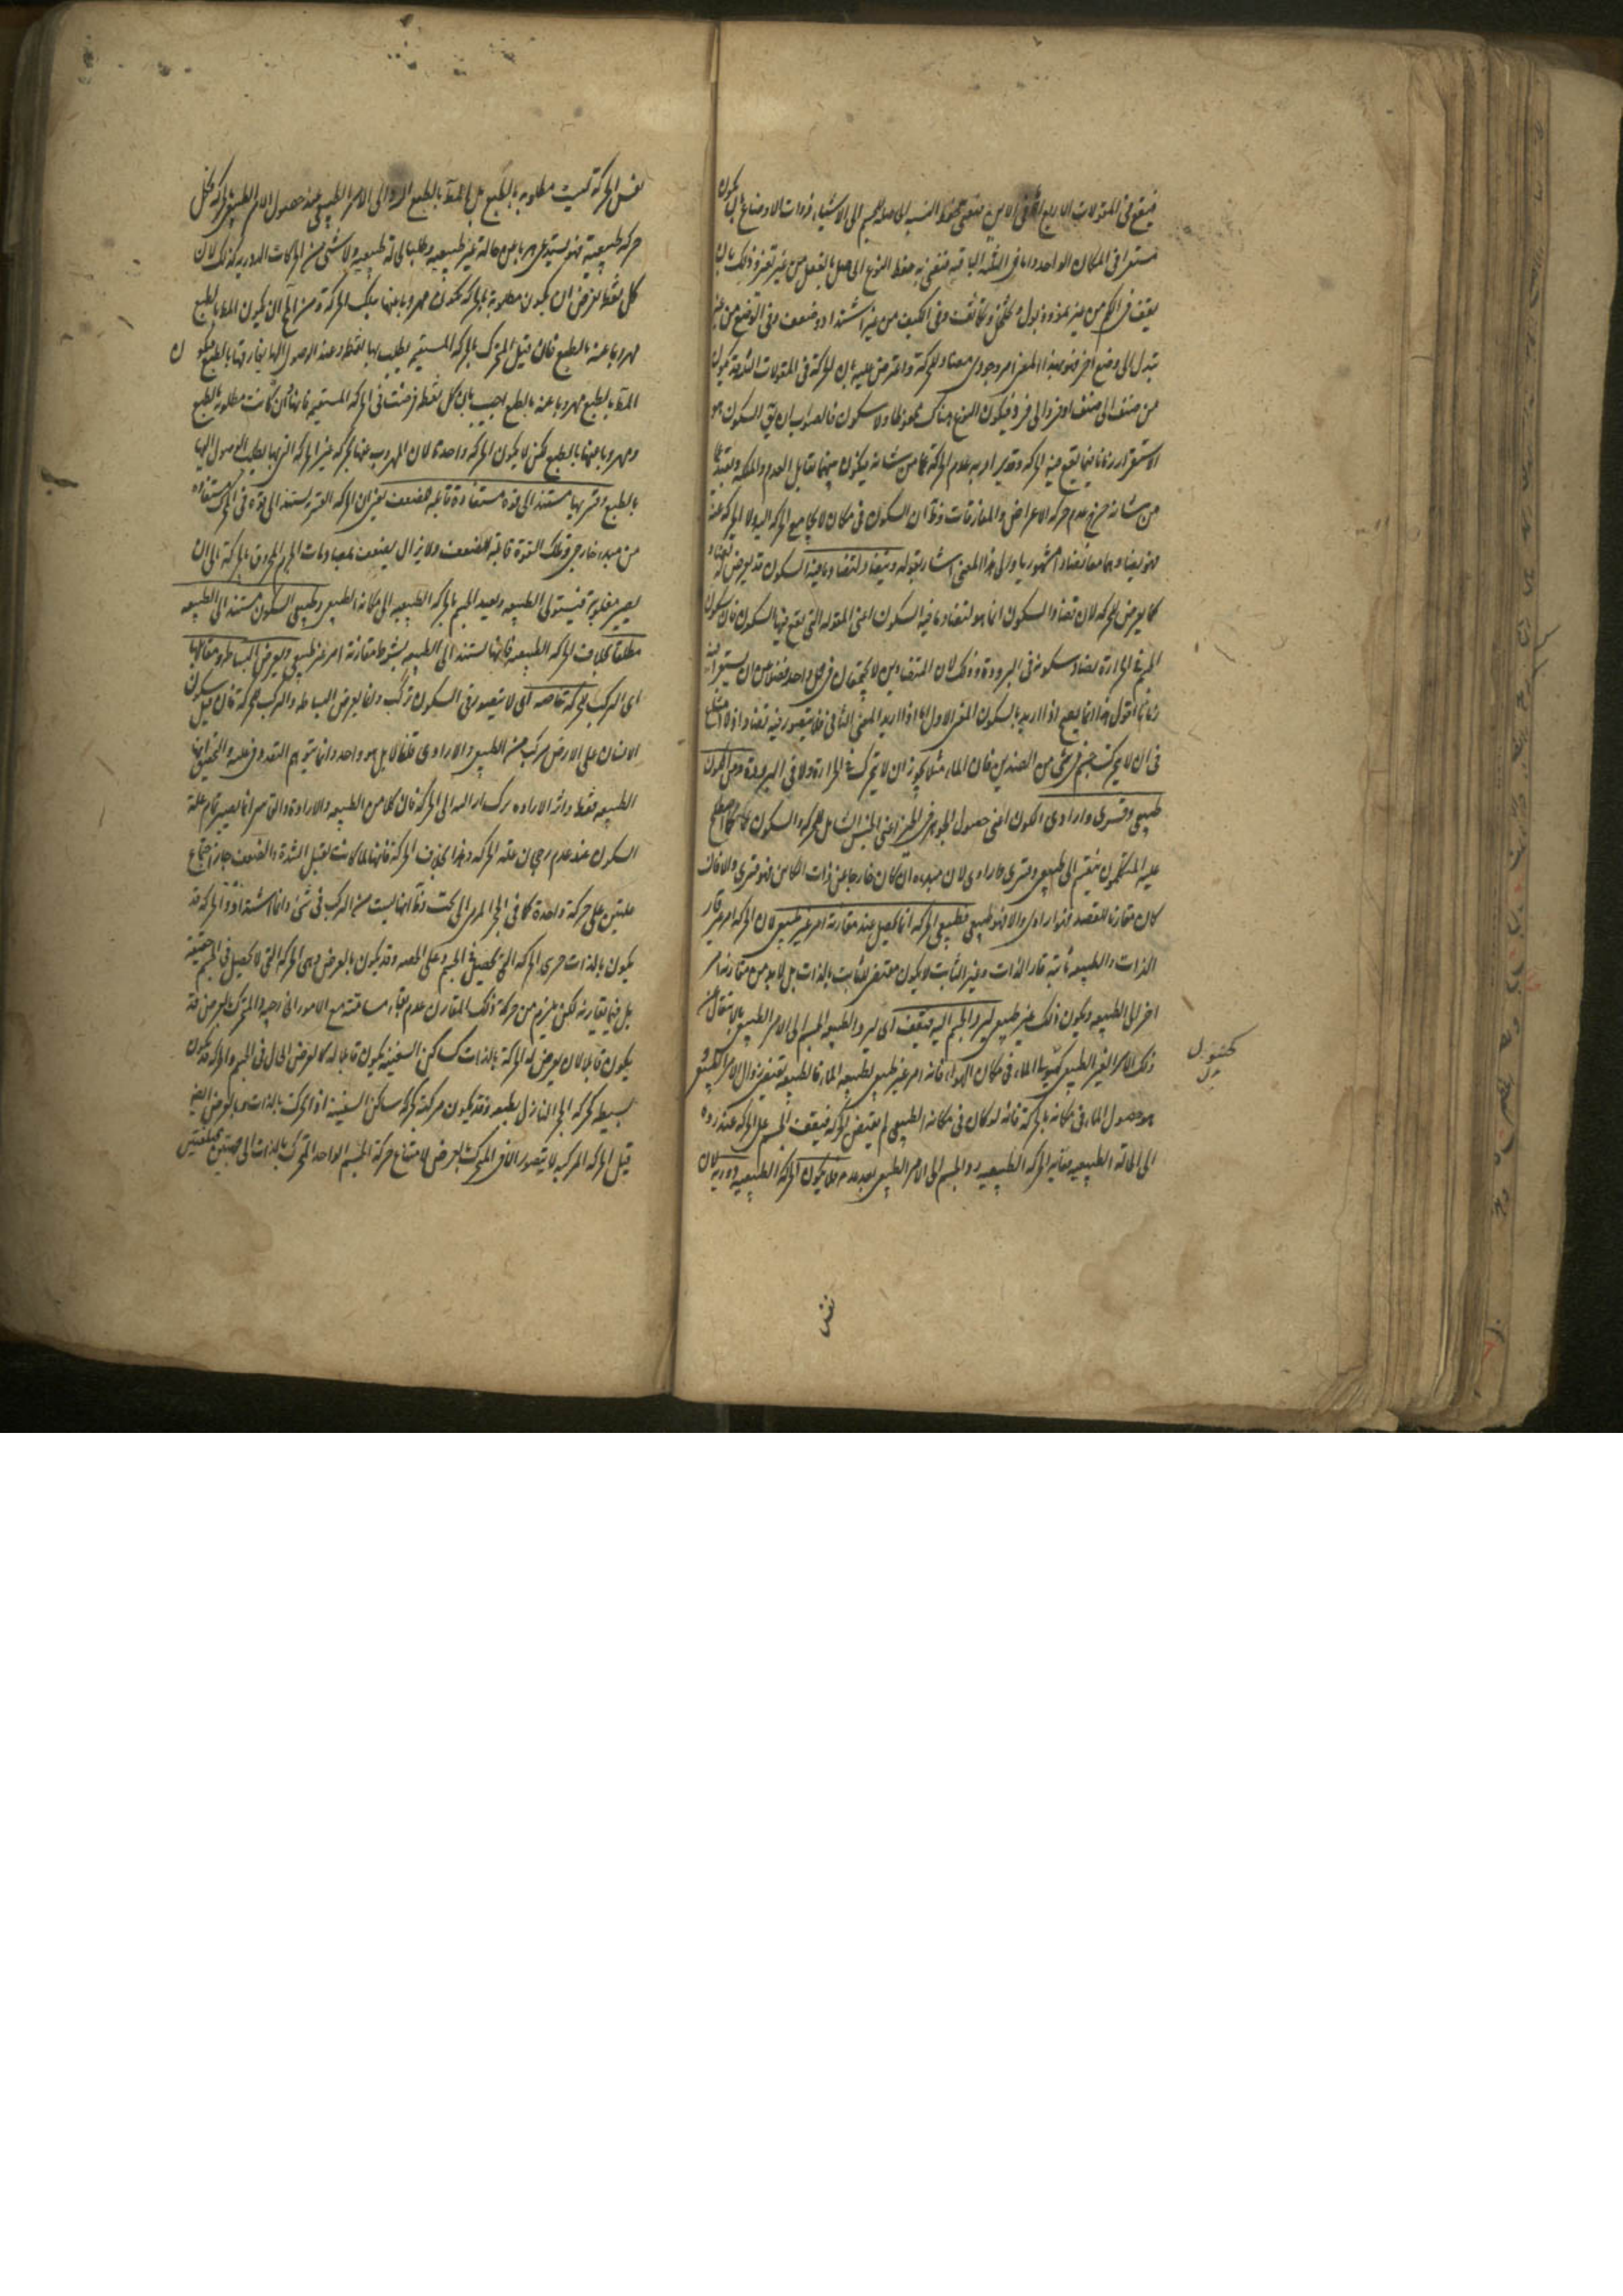 فيقع في المقولات الاربع اما في الاين فنعني بحفظ النسب الحاصله للجسم الى الاشياء ذوات الاوضاع بان يكون
مستقرا في المكان الواحد واما في الثلثة الباقيه فنعني به حفظ النوع الحاصل بالفعل من غير تغير وذلك بان
يقف في الكم من غير نمو وذبول وتخلخل وتكاثف وفي الكيف من غير اشتداد وضعف وفي الوضع من غير
تبدل الى وضع اخر فهو بهذا المعنى امر وجودي مضاد للحركة واعترض عليه بان الحركة في المقولات الثلاثة تكون
من صنف الى صنف او فرد الى فرد فيكون النوع هناك محفوظا ولا سكون فالصواب ان يق السكون هو
الاستقرار زمانا فيما يقع فيه الحركه وقد يراد به عدم الحركة عما من شانه فيكون بينهما تقابل العدم والملكه وبقيد عما
من شانه خرج عدم حركة الاعراض والمفارقات وظ ان السكون في مكان لا يجامع الحركة اليه ولا الحركة عنه
فهو يضادهما معا تضادا مشهوريا والى هذا المعنى اشار بقوله ويتضاد لتضاد ما فيه السكون قد يعرض له تضاد
كما يعرض للحركه لان تضاد السكون انما هو لتضاد ما فيه السكون اعني المقوله التي يقع فيها السكون فان سكون
الجسم في الحرارة يضاد سكونه في البرودة وذلك لان المتضادين لا يجتمعان في محل واحد فضلا من ان يستقر فيه
زمانا اقول هذا انما يصح اذا اريد بالسكون المعنى الاول اما اذا اريد المعنى الثاني فلا يتصور فيه تضاد اذ لا امتناع
في ان لا يتحرك جسم في شي من الضدين فان الماء مثلا يجوز ان لا يتحرك في الحرارة ولا في البرودة ومن الكون
طبيعي وقسري وارادي الكون اعني حصول الجوهر في الحيز اعني الجنس الشامل للحركه والسكون على ما اصطلح
عليه المتكلمون ينقسم الى طبيعي وقسري وارادي لان مبدءه ان كان خارجا عن ذات الكائن فهو قسري والا فان
كان مقارنا للقصد فهو ارادي والا فهو طبيعي فطبيعي الحركه انما يحصل عند مقارنة امر غير طبيعي لان الحركه امر غير قار
الذات والطبيعه ثابتة قار الذات وغير الثابت لا يكون مقتضى للثابت بالذات بل لا بد من مقارنه امر
اخر الى الطبيعه ويكون ذلك غير طبيعي ليرد الجسم اليه فيقف اي ليرد الطبيعه الجسم الى الامر الطبيعي بالانتقال عن
ذلك الامر الغير الطبيعي كتسخن الماء في مكان الهواء فانه امر غير طبيعي لطبيعه الماء فالطبيعه تقتضي زوال الامر الطبيعي و
هو حصول الماء في مكانه بالحركة فانه لو كان في مكانه الطبيعي لم يقتض الحركه فيقف الجسم على الحركه عند رده
الى الحالة الطبيعيه وغاية الحركه الطبيعيه رد الجسم الى الامر الطبيعي بعد عدمه فلا يكون الحركة الطبيعيه دوريه لان
نفس
نفس الحركة ليست مطلوبه بالطبع بل المط بالطبع الرد الى الامر الطبيعي عند حصول الامر الطبيعي الحركه فكل
حركه طبيعية فهو يستدعي هربا عن حالة غير طبيعيه وطلبا لحالة طبيعيه ولا شي من الحركات الدوريه كذلك لان
كل نقطه يفرض ان يكون مطلوبة بالحركه يكون مهروبا عنها بتلك الحركة ومن المح ان يكون المط بالطبع
مهروبا عنه بالطبع فان قيل المتحرك بالحركه المستقيمه يطلب بها نقطه وعند الوصول اليها يفارقها بالطبع فيكون
المط بالطبع مهروبا عنه بالطبع اجيب بان كل نقطه فرضت في الحركه المستقيمه فانها وان كانت مطلوبه بالطبع
ومهروبا عنها بالطبع لكن لا يكون الحركه واحدة لان المهروب عنها بحركه غير الحركه التي بها يطلب الوصول اليها
بالطبع وقسريها مستند الى قوه مستفادة قابله للضعف يعني ان الحركه القسريه يستند الى قوة في المتحرك مستفاده
من مبدء خارجي وتلك القوة قابلة للضعف ولا يزال يضعف بمصاومات الجرم المخروق بالحركة الى ان
يصير مغلوبة فيستولي الطبيعه ويعيد الجسم بالحركه الطبيعيه الى مكانه الطبيعي وطبيعي السكون مستند الى الطبيعه
مطلقا بخلاف الحركه الطبيعيه فانها يستند الى الطبيعه بشرط مقارنة امر غير طبيعي ويعرض البساطه ومقابلها
اي التركب للحركة خاصه اي لا يتصور في السكون تركب وانما يعرض البساطه والتركب للحركة فان قيل سكون
الانسان على الارض مركب من الطبيعي والارادي قلنا لا بل هو واحد وانما يتوهم التعدد في علته والتحقيق انها
الطبيعه فقط واثر الاراده ترك ازالته الى الحركة فان كلا من الطبيعه والارادة والقاسر انما يصير تمام علة
السكون عند عدم رجحان علة الحركه وهذا بخلاف الحركه فانها لما كانت تقبل الشدة والضعف جاز اجتماع
علتين على حركة واحدة كما في الحجر المرمي الى تحت وظ انها ليست من التركب في شي وانما اشتداد والحركه قد
يكون بالذات وهي الحركه التي تحصل في الجسم على الحقيقه وقد يكون بالعرض وهي الحركه التي لا تحصل في الجسم الحقيقة
بل فيما يقارنه لكن يلزم من حركة ذلك المقارن عدم بقاء مسافته مع الامور الخارجيه والمتحرك بالعرض قد
يكون قابلا لان يعرض له الحركة بالذات كساكن السفينه يكون قابلا له كالعرض الحال في الجسم والحركه قد يكون
بسيطه كحركه الحجر النازل بطبعه وقد يكون مركبة كحركه ساكن السفينه اذا تحركت بالذات وبالعرض ايضا
قيل الحركه المركبه لا يتصور الا في المتحرك بالعرض لامتناع حركة الجسم الواحد المتحرك بالذات الى جهتين مختلفتين